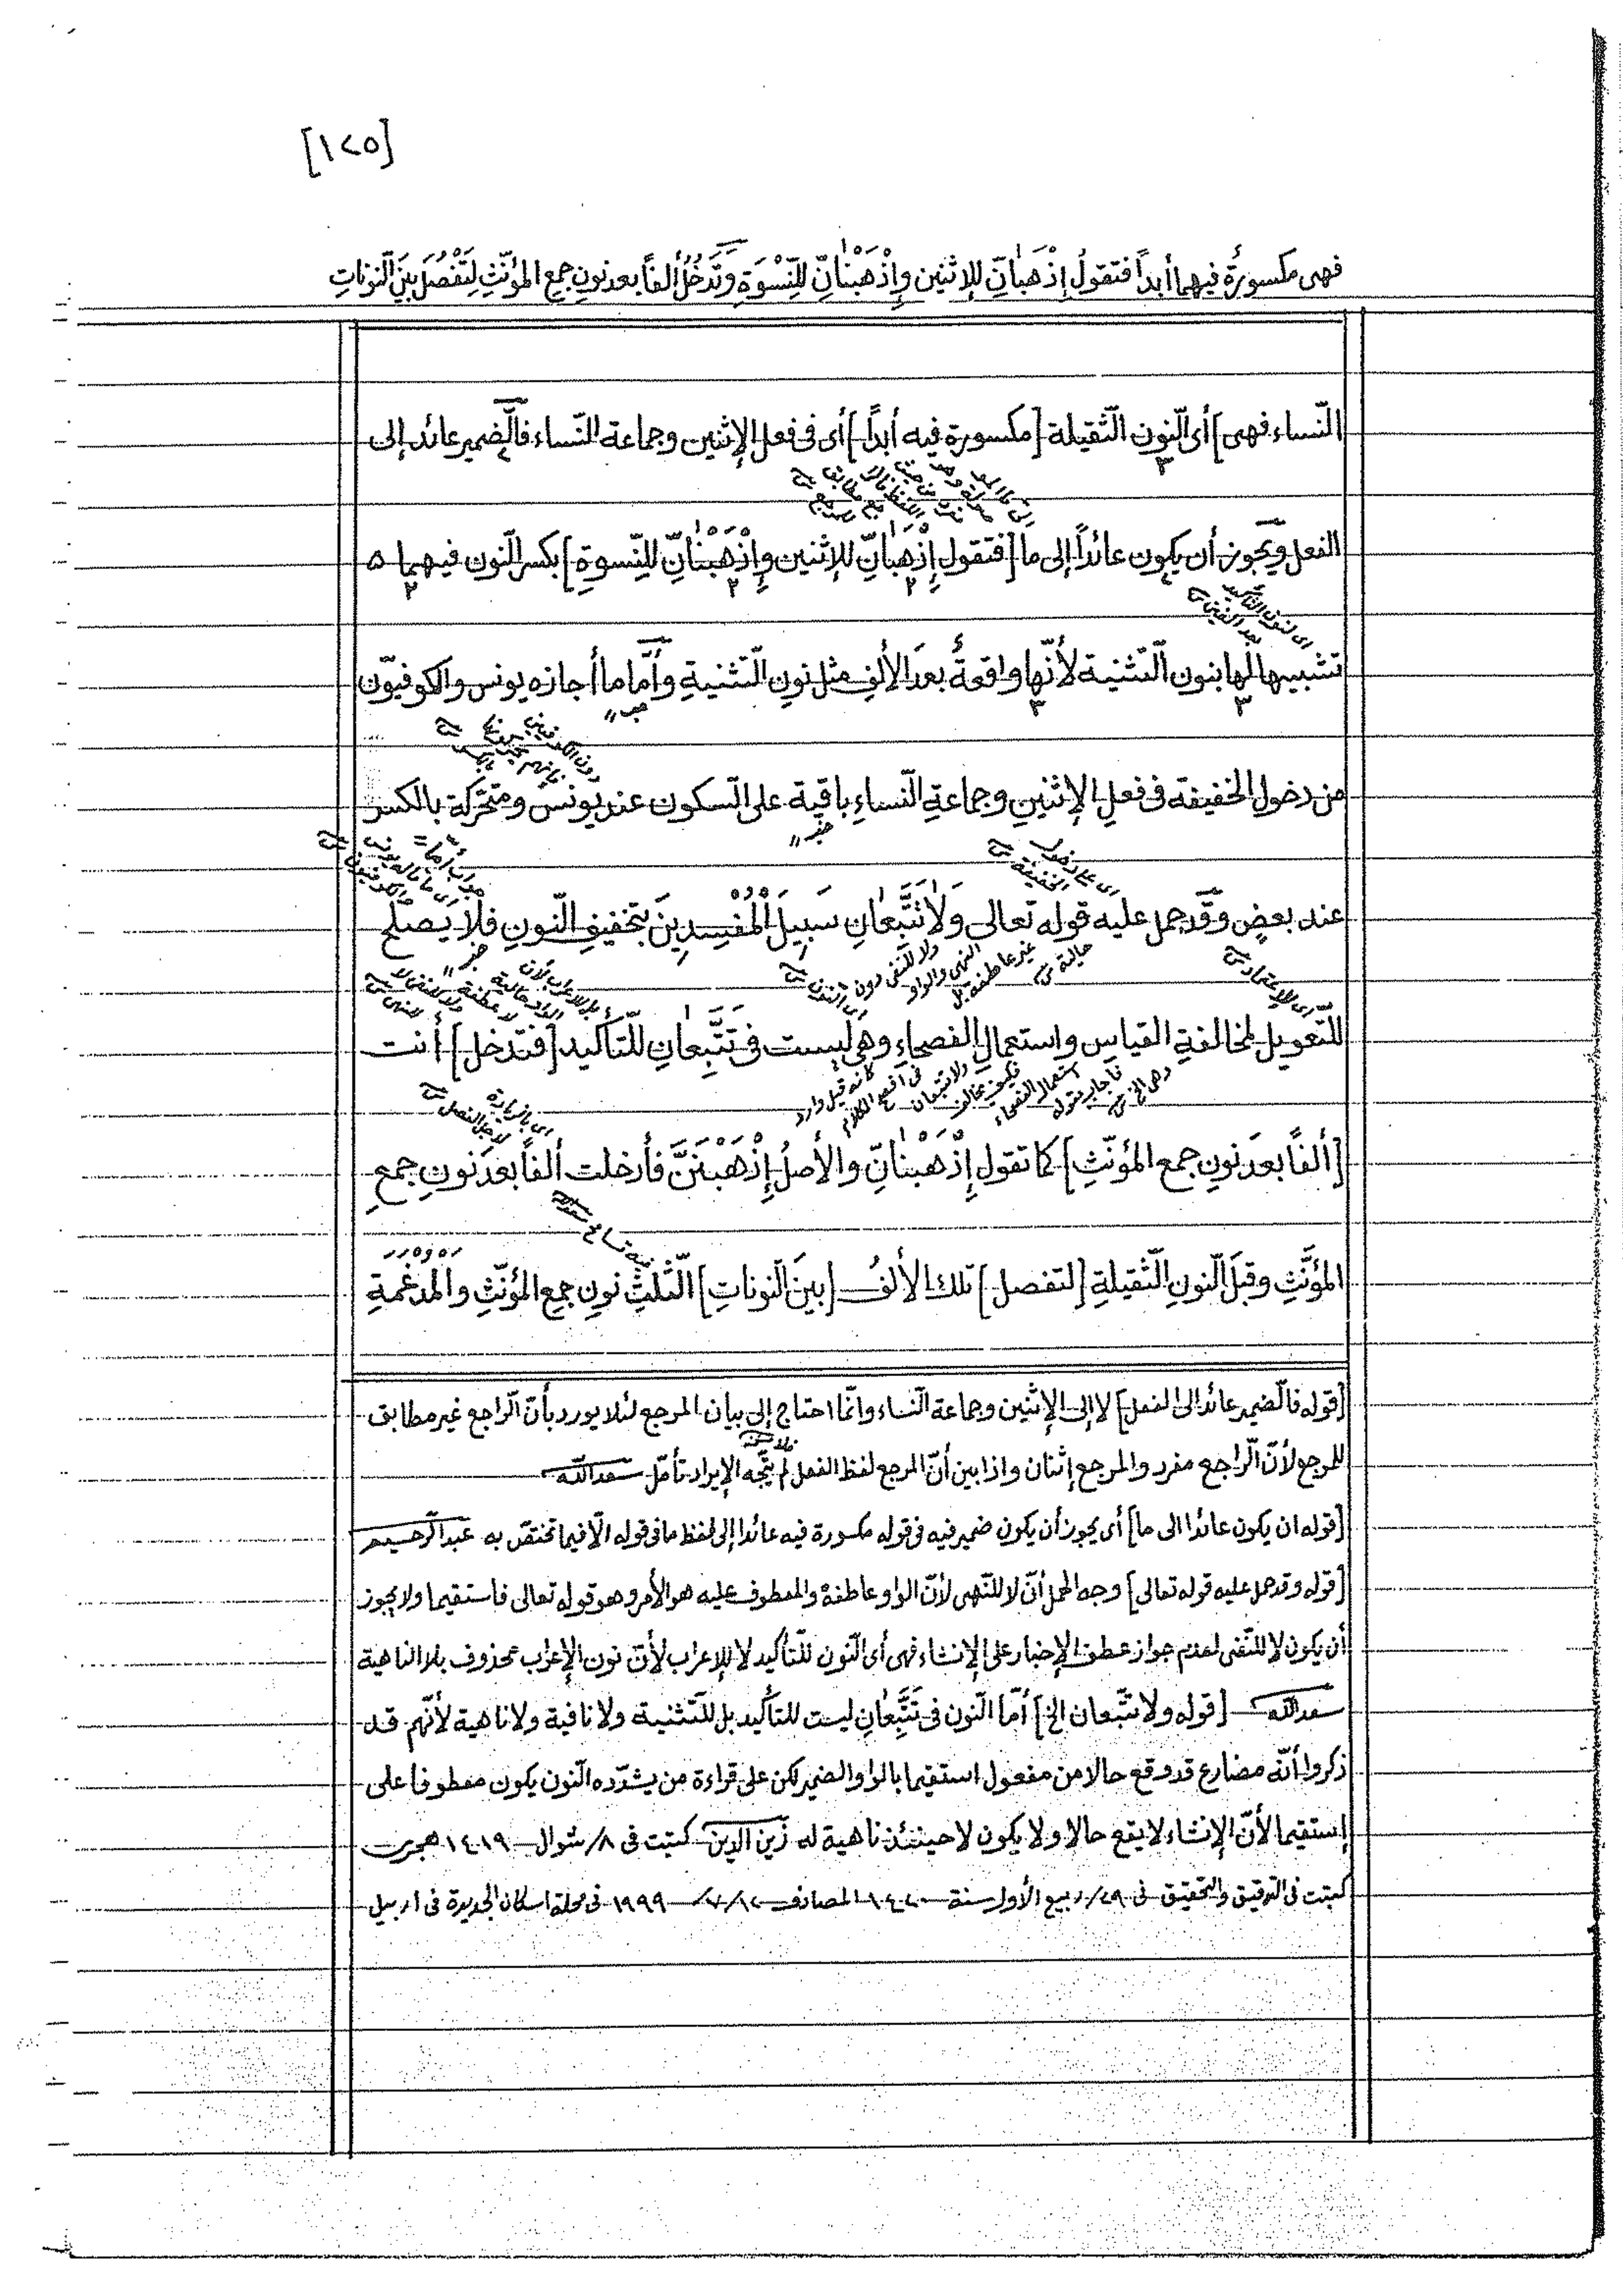 [١٢٥]
فهى مكسورة فيهما أبداً فتقول إِذْهَبَانِّ للإثنين وإِذْهَبْنَانِّ لِلنِّسْوَةِ وتَدْخُلُ ألفاً بعد نونِ جمعِ المؤنّثِ لِتَفْصُلَ بينَ النّوناتِ
النّساء فهى] أى النّون الثّقيلة [مكسورة فيه أبداً] أى فى فعل الإثنين وجماعة النّساء فالضّمير عائد إلى
الفعل ويجوز أن يكون عائداً إلى ما [فتقول إِذْهَبَانِّ للإثنين وإِذْهَبْنَانِّ للنِّسوةِ] بكسر النّون فيهما ٥
اى لنون التأكيد بعد الفين
تشبيها لها بنون التّثنية لأنّها واقعةٌ بعدَ الألفِ مثل نونِ التّثنيةِ وأمّا ما أجازه يونس والكوفيّون
من دخول الخفيفة فى فعلِ الإثنينِ وجماعةِ النّساءِ باقية على السّكون عند يونس ومتحرّكة بالكسر
خبر
اى على دخول الخفيفة
عند بعضٍ وقد حمل عليه قوله تعالى وَلاَ تَتَّبِعَانِ سَبِيلَ الْمُفْسِدِينَ بتخفيفِ النّونِ فلا يصلح
للتّعويل لمخالفةِ القياسِ واستعمالِ الفصحاءِ وهى ليست فى تَتَّبِعَانِ للتّأكيد [فتدخل] أنت
اى بالزيادة لاجل الفصل
[ألفًا بعدَ نونِ جمع المؤنّثِ] كما تقول إِذْهَبْنَانِّ والأصلُ إِذْهَبْنَنَّ فأدخلت ألفاً بعدَ نونِ جمعِ
المؤنَّثِ وقبلَ النّونِ الثّقيلةِ [لتفصل] تلك الألفُ [بينَ النّوناتِ] الثّلثِ نونِ جمعِ المؤنّثِ والمدغمةِ
[قوله فالضّمير عائد الى الفعل] لا إلى الإثنين وجماعة النّساء وانّما احتاج إلى بيان المرجع لئلا يورد بأنّ الرّاجع غير مطابق
للمرجع لأنّ الرّاجع مفرد والمرجع إثنان واذا بين أنّ المرجع لفظ الفعل لم يتّجه الإيراد تأمّل سعدالله
[قوله ان يكون عائدا الى ما] أى يجوز أن يكون ضمير فيه فى قوله مكسورة فيه عائدا إلى لفظ ما فى قوله الّا فيما تختصّ به عبدالرّحيم
[قوله وقد حمل عليه قوله تعالى] وجه الحمل أنّ لا للنّهى لأنّ الواو عاطفة والمعطوف عليه هو الأمر وهو قوله تعالى فاستقيما ولا يجوز
أن يكون لا للنّفى لعدم جواز عطف الإخبار على الإنشاء فهى أى النّون للتّأكيد لا للإعراب لأنّ نون الإعراب محذوف بلا الناهية
سعدالله [قوله ولا تتّبعان الخ] أمّا النّون فى تَتَّبِعَانِ ليست للتأكيد بل للتّثنية ولا نافية ولا ناهية لأنّهم قد
ذكروا أنّه مضارع قد وقع حالا من مفعول استقيما بالواو والضمير لكن على قراءة من يشدّده النّون يكون معطوفا على
إستقيما لأنّ الإنشاء لا يقع حالا ولا يكون لا حينئذ ناهية له زين الدين كتبت فى ٨/ شوال ١٤١٩ هجرت
كتبت فى التدقيق والتحقيق فى ٢٩/ ربيع الأول سنة ١٤٢٠ المصادف ١٢/٧/ ١٩٩٩ فى محلة اسكان الجديدة فى اربيل